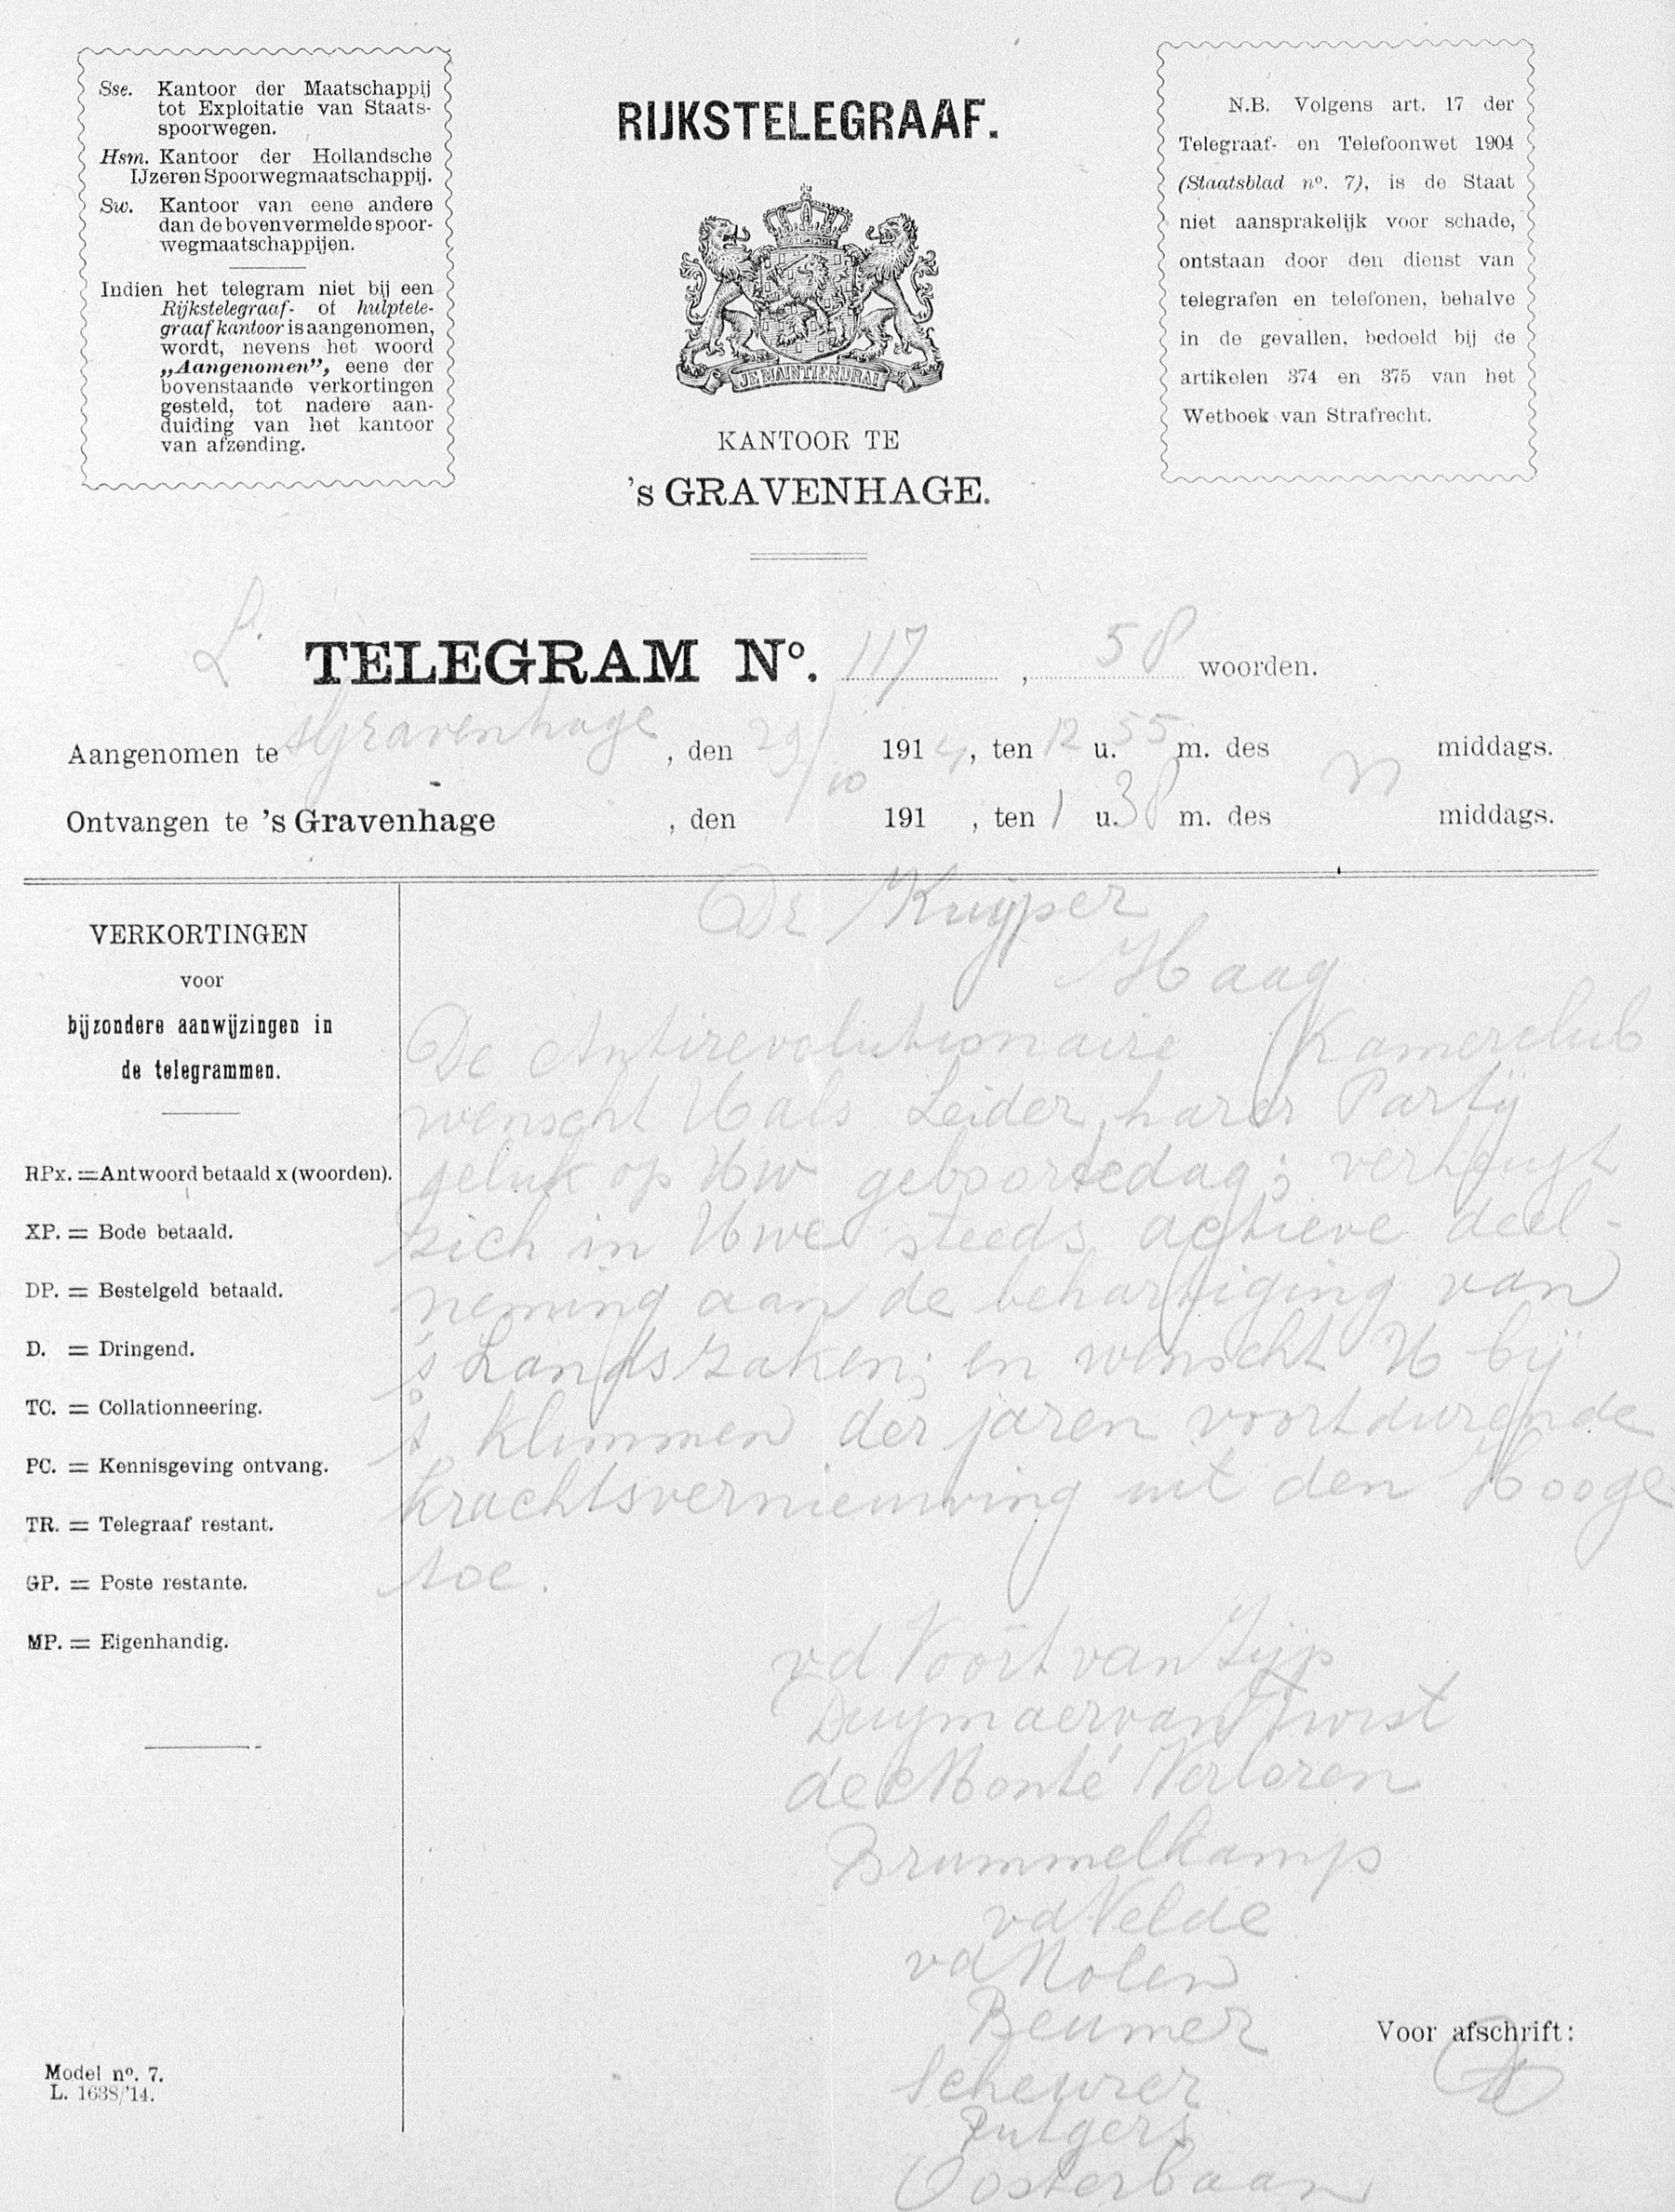 Sse. Kantoor der Maatschappij
tot Exploitatie van Staats-
spoorwegen.
Hsm. Kantoor der Hollandsche
IJzeren Spoorwegmaatschappij.
Sw. Kantoor van eene andere
dan de bovenvermelde spoor-
wegmaatschappijen.
Indien het telegram niet bij een
Rijkstelegraaf- of hulptele-
graafkantoor is aangenomen,
wordt, nevens het woord
„Aangenomen”, eene der
bovenstaande verkortingen
gesteld, tot nadere aan-
duiding van het kantoor
van afzending.
RIJKSTELEGRAAF.
JE MAINTIENDRAI
KANTOOR TE
's GRAVENHAGE.
N.B. Volgens art. 17 der
Telegraaf- en Telefoonwet 1904
(Staatsblad nº. 7), is de Staat
niet aansprakelijk voor schade,
ontstaan door den dienst van
telegrafen en telefonen, behalve
in de gevallen, bedoeld bij de
artikelen 374 en 375 van het
Wetboek van Strafrecht.
TELEGRAM Nº. 117, 58 woorden.
Aangenomen te sGravenhage, den 29/10 1914, ten 12 u. 55 m. des n middags.
Ontvangen te 's Gravenhage, den 191 , ten 1 u. 38 m. des middags.
VERKORTINGEN
voor
bijzondere aanwijzingen in
de telegrammen.
RPx. = Antwoord betaald x (woorden).
XP. = Bode betaald.
DP. = Bestelgeld betaald.
D. = Dringend.
TC. = Collationneering.
PC. = Kennisgeving ontvang.
TR. = Telegraaf restant.
GP. = Poste restante.
MP. = Eigenhandig.
Model nº. 7.
L. 1638/'14.
Dr Kuyper
Haag
De Antirevolutionaire Kamerclub
wenscht U als Leider harer Partij
geluk op Uw geboortedag; verheugt
zich in Uwe steeds actieve deel-
neming aan de behartiging van
's Lands zaken; en wenscht U bij
't klimmen der jaren voortdurende
krachtsvernieuwing uit den Hooge
toe.
vd Voort van Zijp
Duymaer van Twist
de Monté Verloren
Brummelkamp
vd Velde
vd Molen
Beumer
Scheurer
Rutgers
Oosterbaan
Voor afschrift: